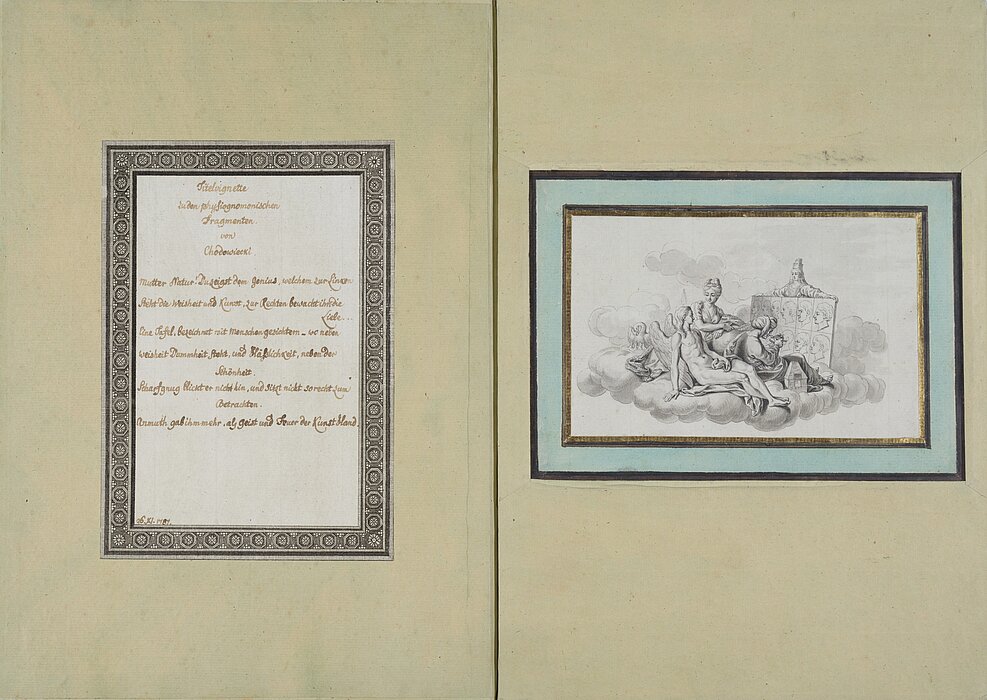 Titelvignette
zu den physiognomonischen
Fragmenten.
von
Chodowiecki
Mutter Natur! Du zeigst dem Genius, welchem zur Linken
steht die Weisheit und Kunst, zur Rechten bewacht ihn die
Liebe...
Eine Tafel, bezeichnet mit Menschengesichtern_ wo neben
Weisheit Dummheit steht, und Häßlichkeit, neben der
Schönheit.
Scharf gnug blickt er nicht hin, und sitzt nicht so recht zum
Betrachten.
Anmuth gab ihm mehr, als Geist und Feuer der Kunst Hand.